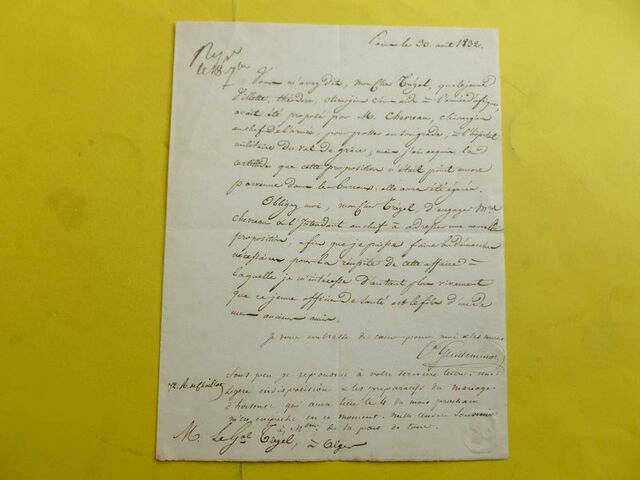 Paris le 30. aout 1832.
Rep.
le 18 7bre
Vous m'avez dit, mon cher Trézel, que le jeune
Villette, théodore, chirurgien sous aide à l'armée d'afrique,
avait été proposé par M. Chevreau, chirurgien
en chef de l'armée, pour passer en son grade, à l'hôpital
militaire du val de grâce; mais j'ai acquis la
certitude que cette proposition n'était point encore
parvenue dans les bureaux; elle aura été égarée.
Obligez moi, mon cher Trézel, d'engager Mr
Chevreau & l'Intendant en chef à adresser une nouvelle
proposition, afin que je puisse faire les démarches
nécessaires pour la réussite de cette affaire à
laquelle je m'intéresse d'autant plus vivement
que ce jeune officier de santé est le fils d'un de
mes anciens amis.
Je vous embrasse de cœur pour moi & les miens
Guilleminot
Sous peu je répondrai à votre dernière lettre: une
légère indisposition & les préparatifs du mariage
d'hortense qui aura lieu le 4 du mois prochain
m'en empêche en ce moment. mille tendres souvenirs
à Mme de la part de tous.
M. Le Gal Trézel, à Alger